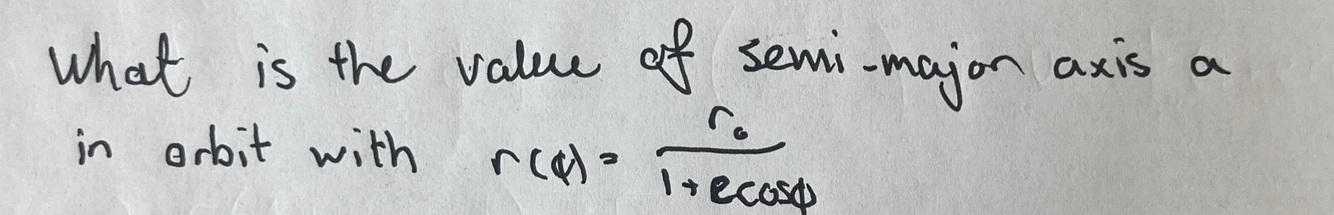 What is the value of semi-major axis a
in orbit with r(φ) = r₀ / (1 + e cosφ)